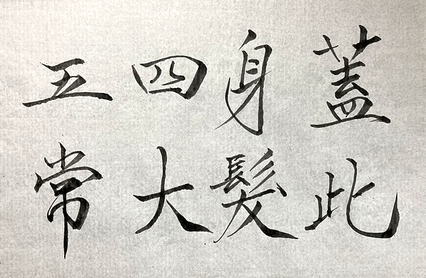 蓋此
身髮
四大
五常